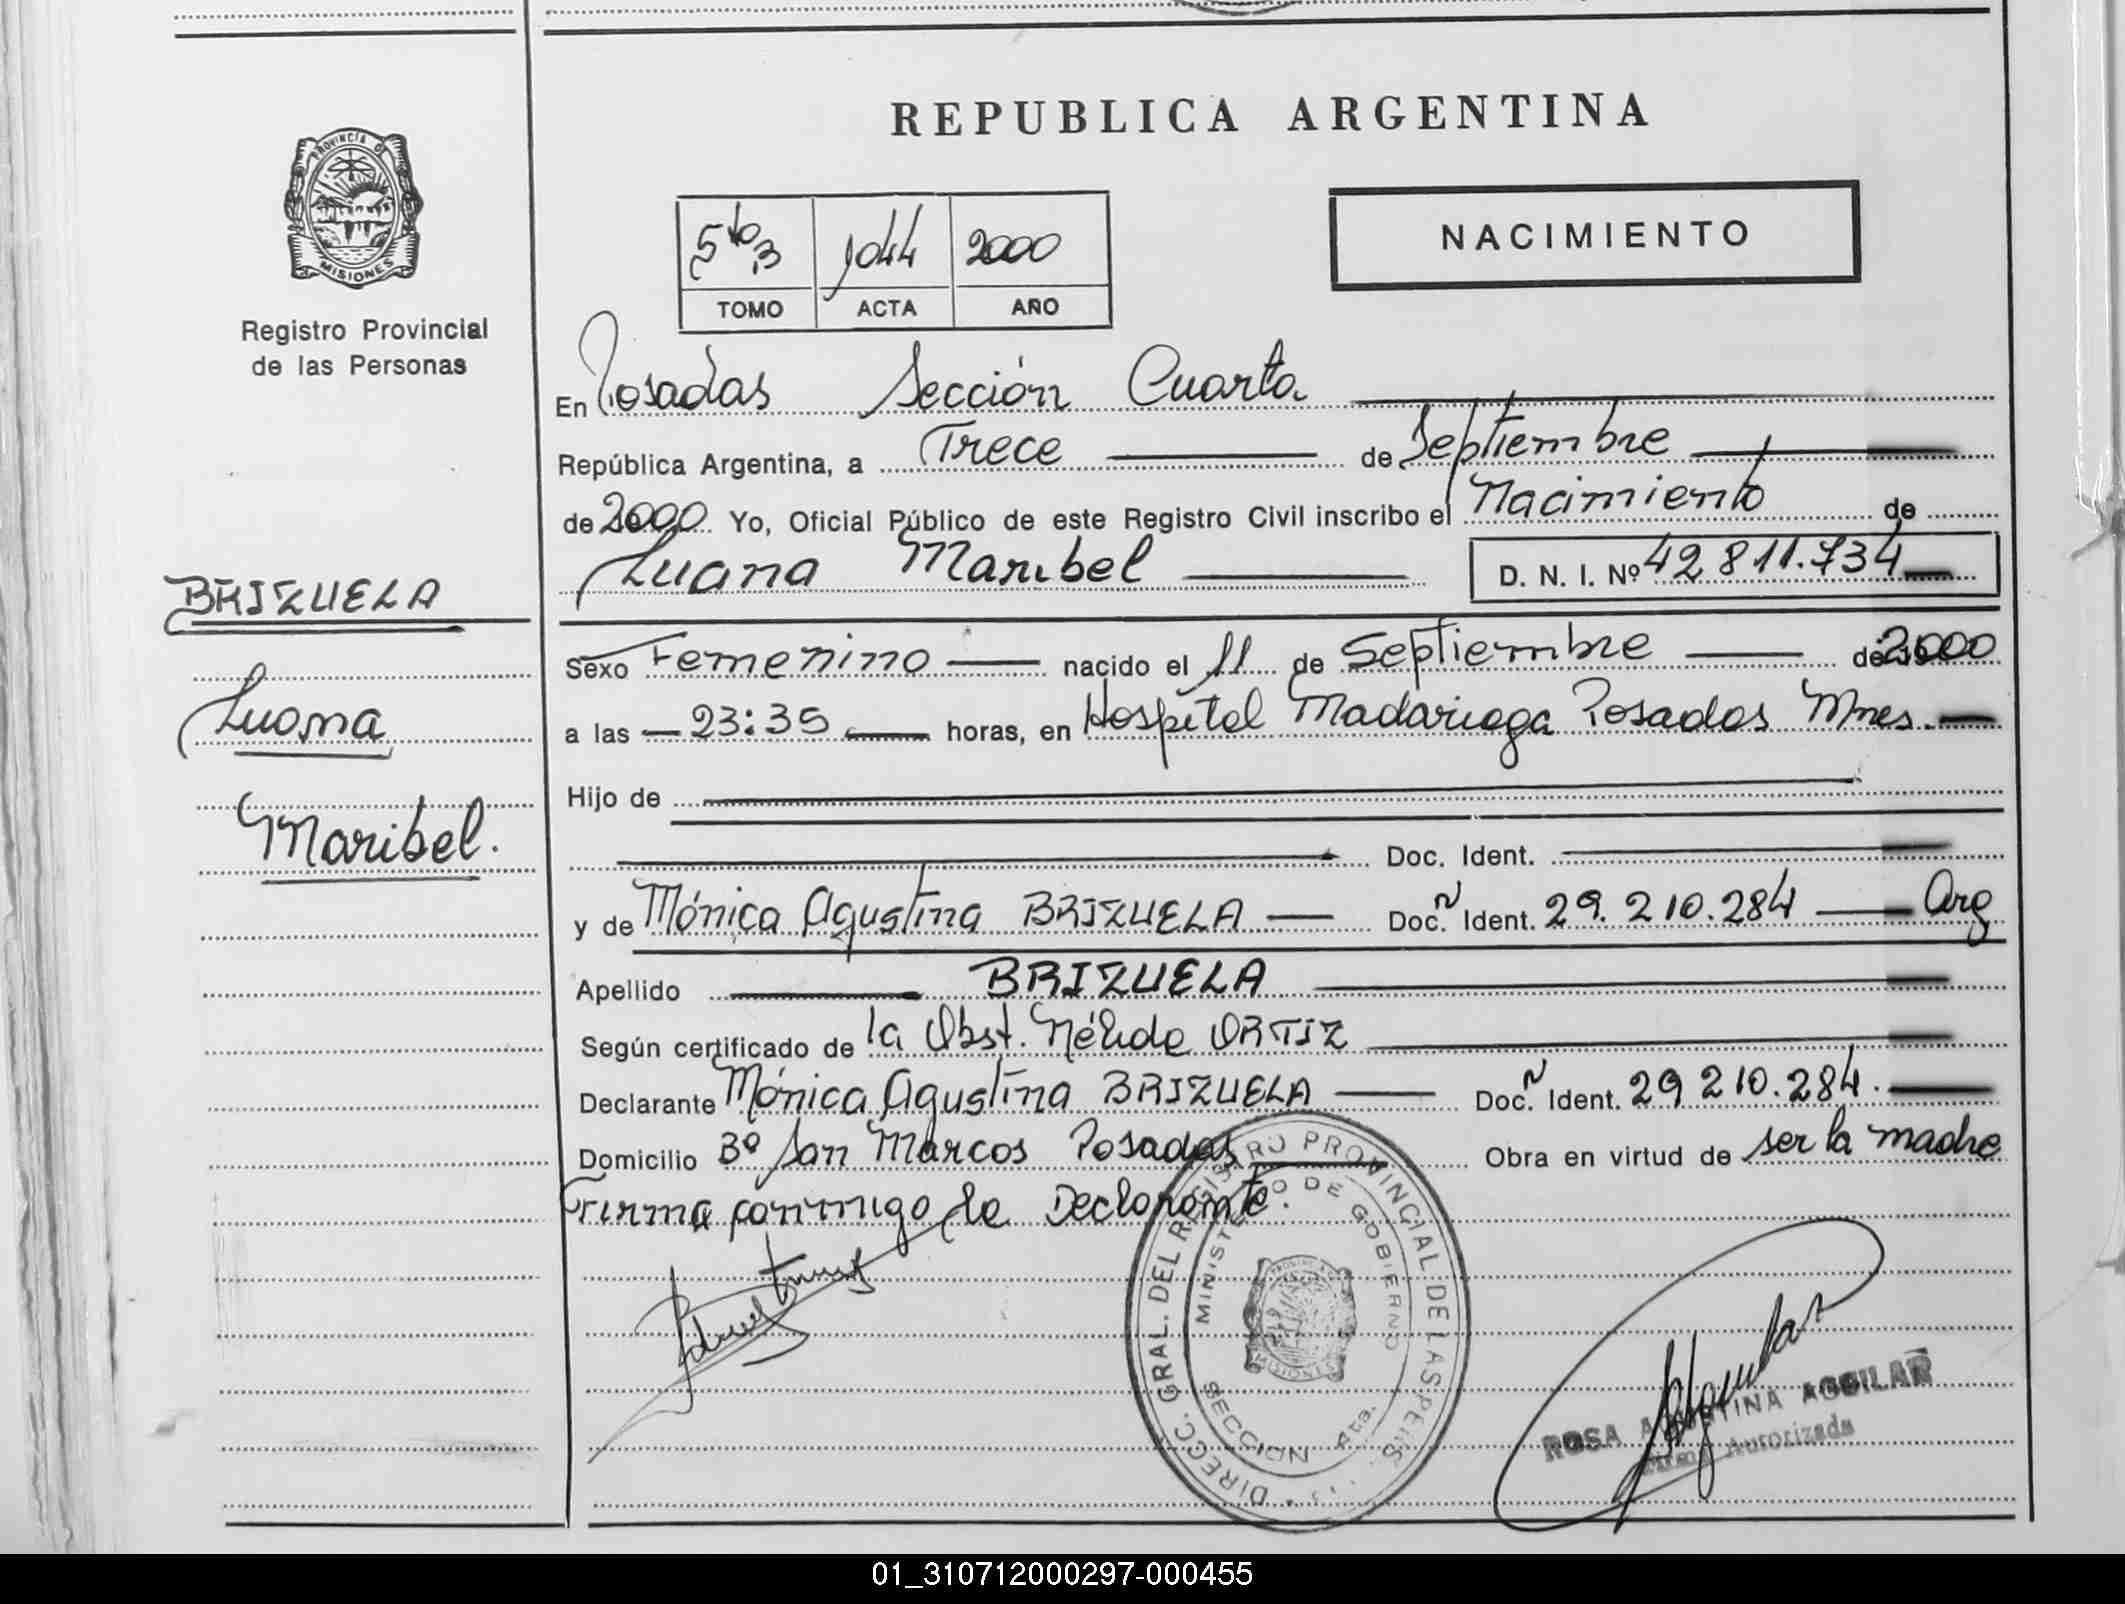 REPUBLICA ARGENTINA
PROVINCIA DE
MISIONES
Registro Provincial
de las Personas
NACIMIENTO
5to 1044 2000
TOMO ACTA AÑO
En Posadas Sección Cuarta
República Argentina, a Trece de Septiembre
de 2000 Yo, Oficial Público de este Registro Civil inscribo el Nacimiento de
Luana Maribel D. N. I. Nº 42 811.734
BRIZUELA
Luana
Maribel.
Sexo Femenino nacido el 11 de Septiembre de 2000
a las 23:35 horas, en Hospital Madariaga Posadas Mnes.
Hijo de
Doc. Ident.
y de Mónica Agustina BRIZUELA Doc. Ident. 29.210.284 Arg
Apellido BRIZUELA
Según certificado de la Obst. Nélida ORTIZ
Declarante Mónica Agustina BRIZUELA Doc. Ident. 29 210.284.
Domicilio Bº San Marcos Posadas Obra en virtud de ser la madre
Firma conmigo la Declarante.
DIRECC. GRAL. DEL REGISTRO PROVINCIAL DE LAS PERS.
MINISTERIO DE GOBIERNO
SECCION 4ta.
ROSA AGUSTINA AGUILAR
Firma Autorizada
01_310712000297-000455